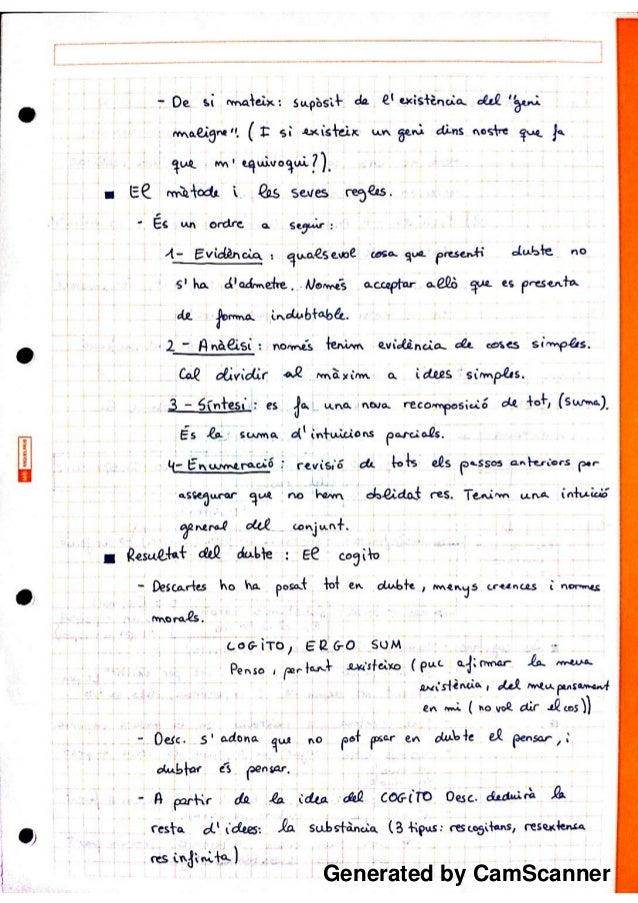 - De si mateix: supòsit de l'existència del "geni
maligne". (I si existeix un geni dins nostre que fa
que m'equivoqui?).
■ El mètode i les seves regles.
- És un ordre a seguir:
1- Evidència: qualsevol cosa que presenti dubte no
s'ha d'admetre. Només acceptar allò que es presenta
de forma indubtable.
2 - Anàlisi: només tenim evidència de coses simples.
Cal dividir al màxim a idees simples.
3 - Síntesi: es fa una nova recomposició de tot, (suma).
És la suma d'intuicions parcials.
4- Enumeració: revisió de tots els passos anteriors per
assegurar que no hem oblidat res. Tenim una intuició
general del conjunt.
■ Resultat del dubte: El cogito
- Descartes ho ha posat tot en dubte, menys creences i normes
morals.
COGITO, ERGO SUM
Penso, per tant existeixo (puc afirmar la meva
existència, del meu pensament
en mi (no vol dir el cos))
- Desc. s'adona que no pot posar en dubte el pensar, i
dubtar és pensar.
- A partir de la idea del COGITO Desc. deduirà la
resta d'idees: la substància (3 tipus: res cogitans, res extensa
res infinita)
Generated by CamScanner